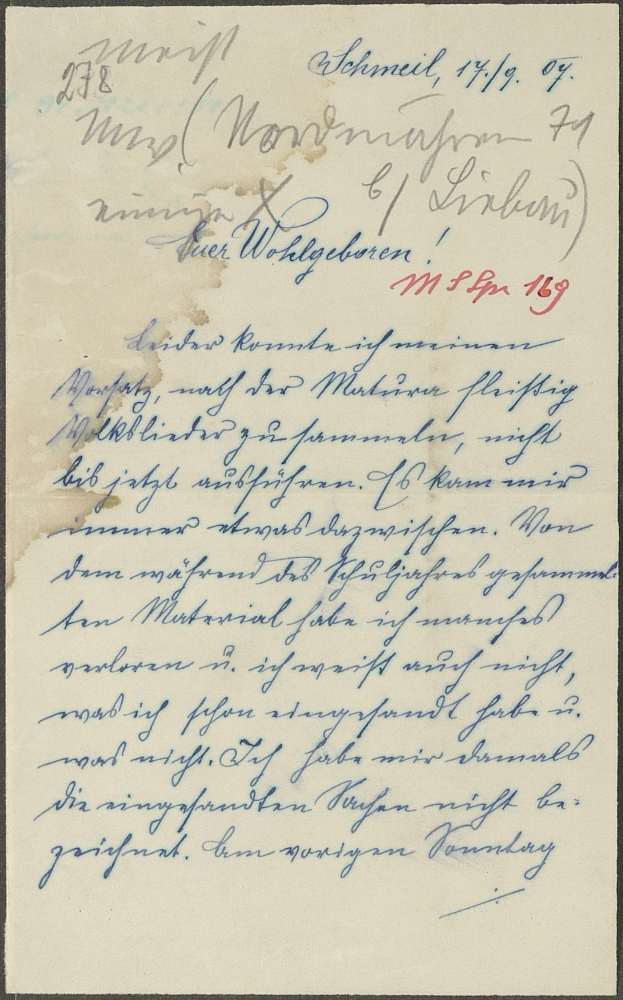 meist
Schmeil, 17./9. 07.
278
Mw. (Nordmähren 71
einige X b/ Liebau)
Euer Wohlgeboren!
M S Spr 169
Leider konnte ich meinen
Vorsatz, nach der Matura fleißig
Volkslieder zu sammeln, nicht
bis jetzt ausführen. Es kam mir
immer etwas dazwischen. Von
dem während des Schuljahres gesammel-
ten Material habe ich manches
verloren u. ich weiß auch nicht,
was ich schon eingesandt habe u.
was nicht. Ich habe mir damals
die eingesandten Sachen nicht be-
zeichnet. Am vorigen Sonntag